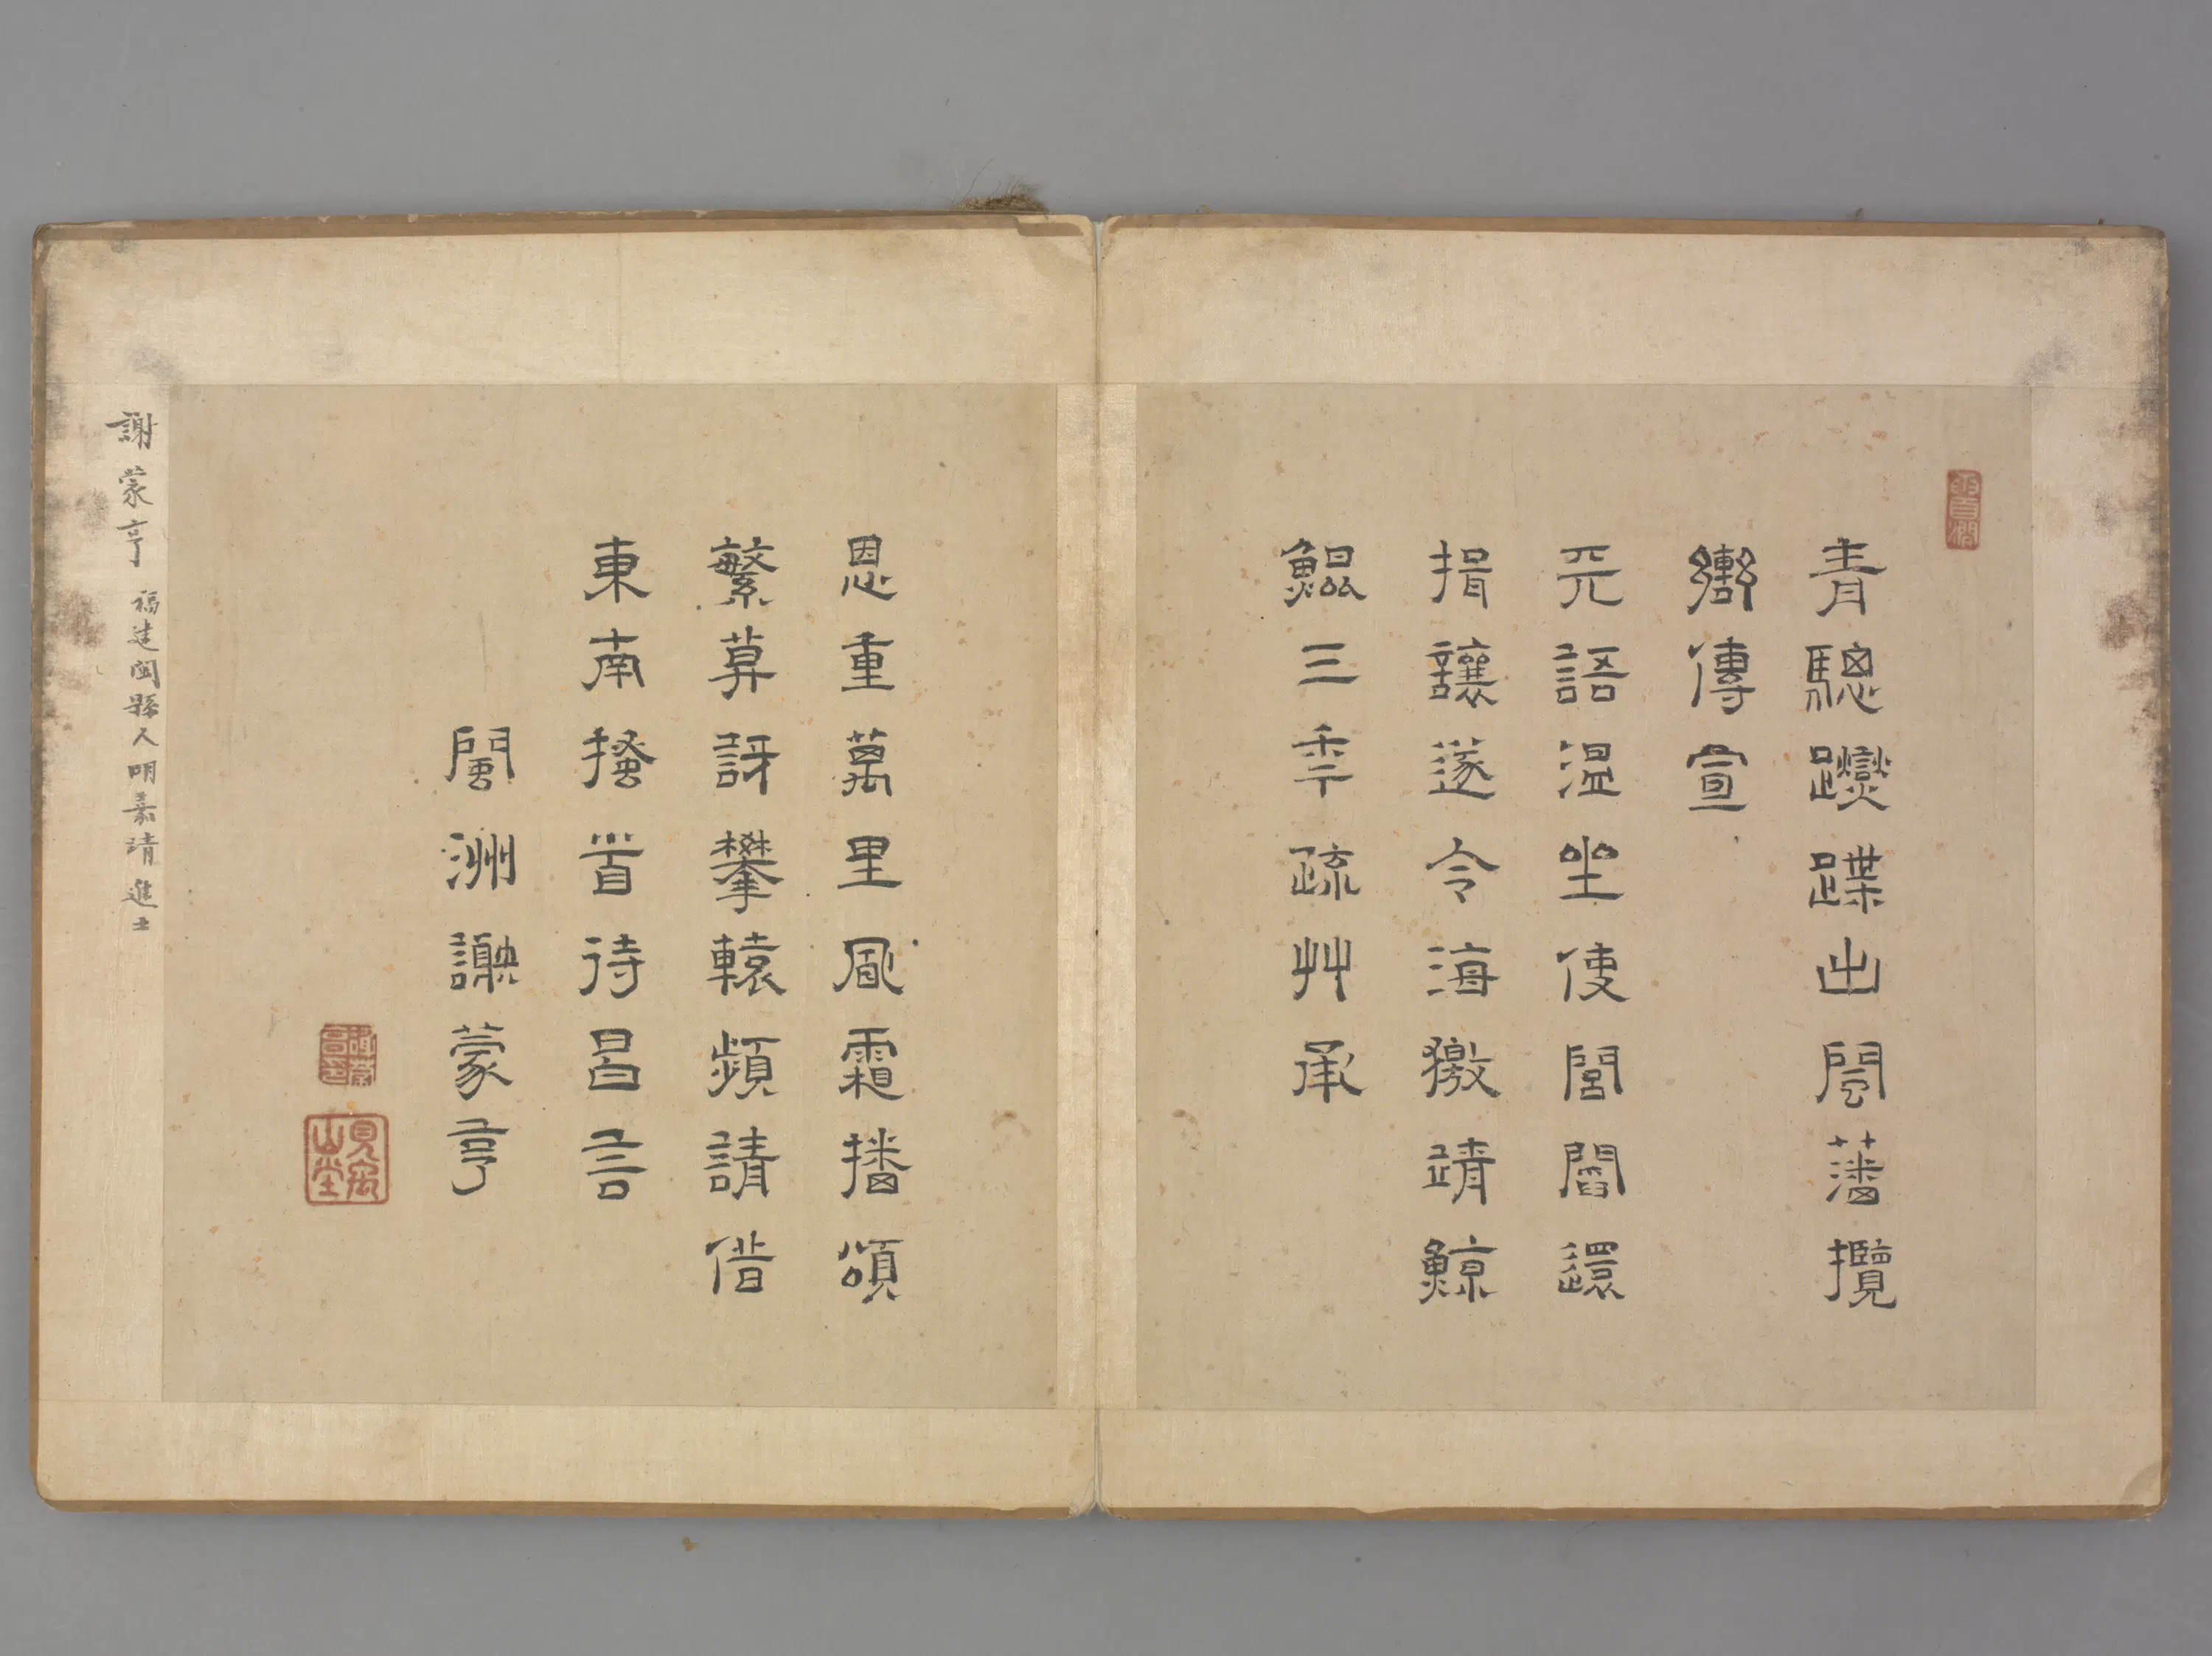 青驄躞蹀出閩藩攬
轡傳宣
天語温坐使閭閻還
揖讓遂令海徼靖鯨
鯤三秊疏艸承
恩重萬里風霜播頌
繁莫訝攀轅頻請借
東南搔首待昌言
閩洲謝蒙亨
謝蒙亨 福建閩縣人明嘉靖進士